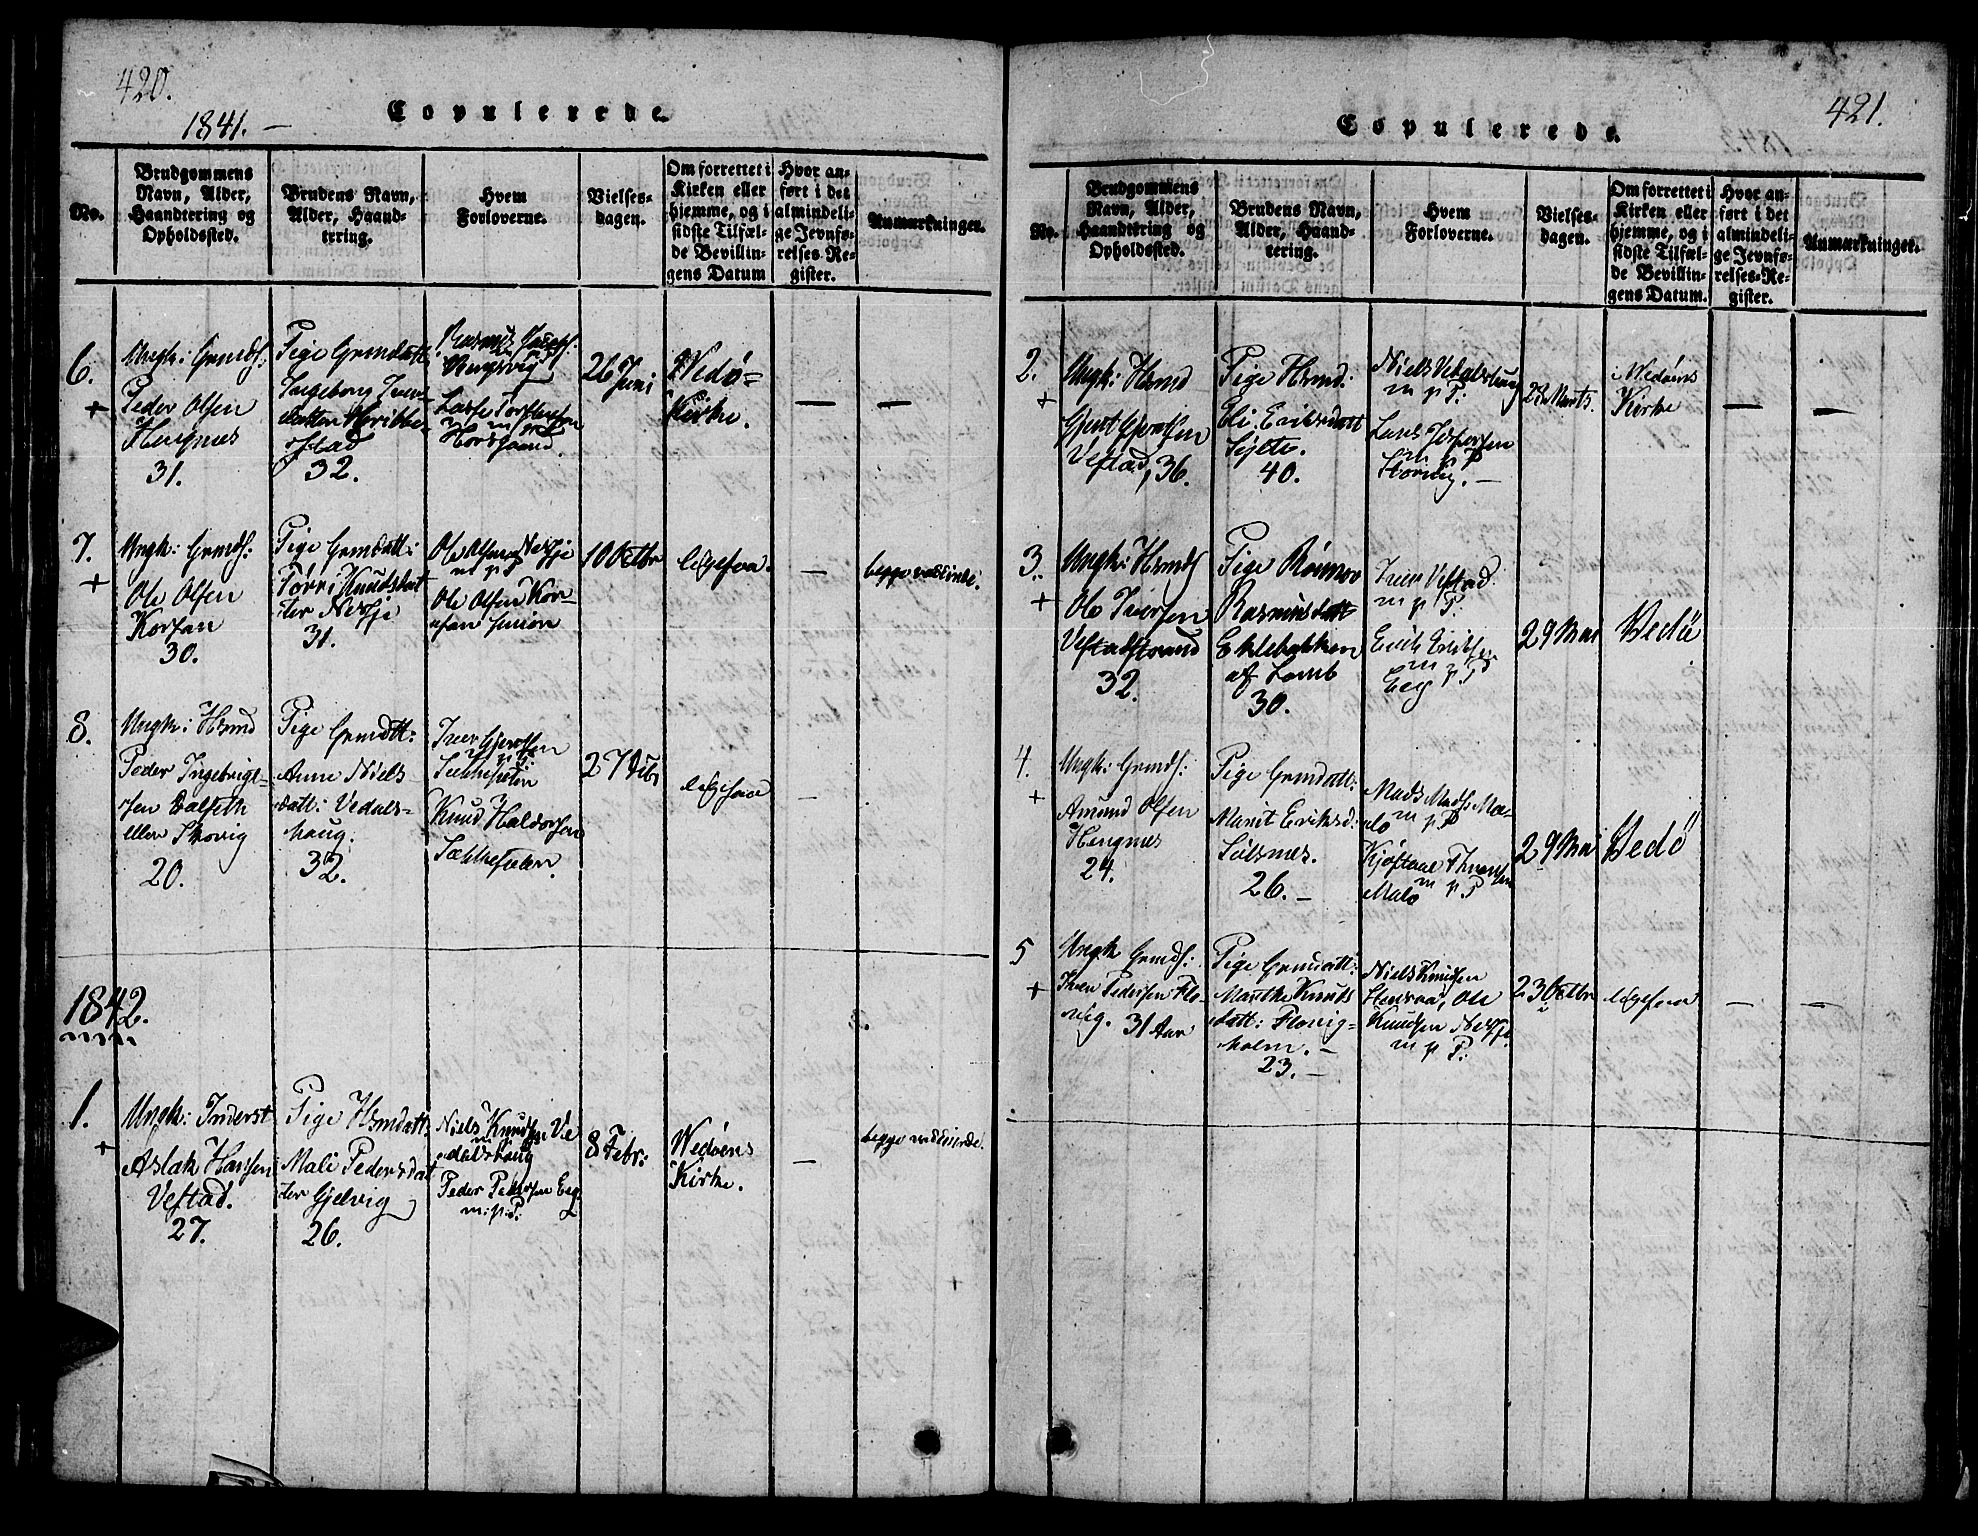 420.
1841. —
Copulerede.
No.
Brudgommens
Navn, Alder,
Haandtering og
Opholdssted.
Brudens Navn,
Alder, Haand-
tering.
Hvem
Forloverne.
Vielses-
dagen.
Om forrettet i
Kirken eller
hjemme, og i
sidste Tilfæl-
de Bevillin-
gens Datum
Hvor an-
ført i det
almindeli-
ge Jevnfø-
relses-Re-
gister.
Anmærkninger.
6.
+
Ungk: Grmds:
Peder Olsen
Hengnes
31.
Pige Grmdatt:
Ingeborg Iver-
datter
stad
32.
Rasmus
Lasse Torstensen
m p P
26 Juni
Wedø-
Kirke.
—
—
7.
+
Ungk: Grmds:
Ole Olsen
Korsan
30.
Pige Grmdatt:
Tørri Knudsdat
ter Nesje
31.
Ole Olsen Nesje
m p P
Ole Olsen Kor-
san junior
10 Octbr
ligesaa.
—
begge vaccinede.
8.
Ungk: Hsmd
Peder Ingebrigt-
sen Dalseth
eller Skovig
20.
Pige Grmdatt:
Anne Niels
datt: Vedals-
houg.
32.
Iver Gjertsen
m p P
Sækkesæten
Knud Haldorsen
Sækkesæten.
27 Decbr
ligesaa
—
1842.
1.
+
Ungk: Inderst
Aslak Hansen
Vestad.
27.
Pige Hsmdatt:
Mali Pedersdat
ter Gjelvig
26.
Niels Knudsen Ve
m p P
dalshoug
Peder Pedersen Eeg
m: p: P:
8 Febr:
Wedøens
Kirke.
—
begge vaccinerde.
421.
Copulerede.
No.
Brudgommens
Navn, Alder,
Haandtering og
Opholdssted.
Brudens Navn,
Alder, Haand-
tering.
Hvem
Forloverne.
Vielses-
dagen.
Om forrettet i
Kirken eller
hjemme, og i
sidste Tilfæl-
de Bevillin-
gens Datum.
Hvor an-
ført i det
almindeli-
ge Jevnfø-
relses-Re-
gister.
Anmærkninger.
2.
+
Ungk: Hsmd
Gjert Gjertsen
Vestad, 36.
Pige Hsmd:
Eli Eriksdatt
Sylte.
40.
Niels Vedalshoug
m p P:
Lars
m p P
Skovig. —
28 Marts.
i Wedøens
Kirke
—
—
3.
+
Ungk: Hsmds
Ole Iversen
Vestadstrand
32.
Pige
Rasmusdatt
Eklebakken
af Lomb
30.
Iver Vestad
m p P:
Erik Eriksen
m p P
Eeg
29 Mai
Vedø
4.
+
Ungk: Grmds:
Amund Olsen
Hengnes
24.
Pige Grmdatt:
Marit Eriksd:
Sølsnes.
26. —
Mads Mads: Ma-
m p P
lo
Kjøstael
m p P
Malo
29 Mai
Vedø
5
+
Ungk Grmds:
Iver Pedersen Flo-
vig. 31 Aar
Pige Grmdatt:
Marthe Knuds
datt: Flovig-
holm. —
23. —
Niels Knudsen
Ole
Knudsen Nesje
m p P:
23 Octbr
ligesaa
—
—